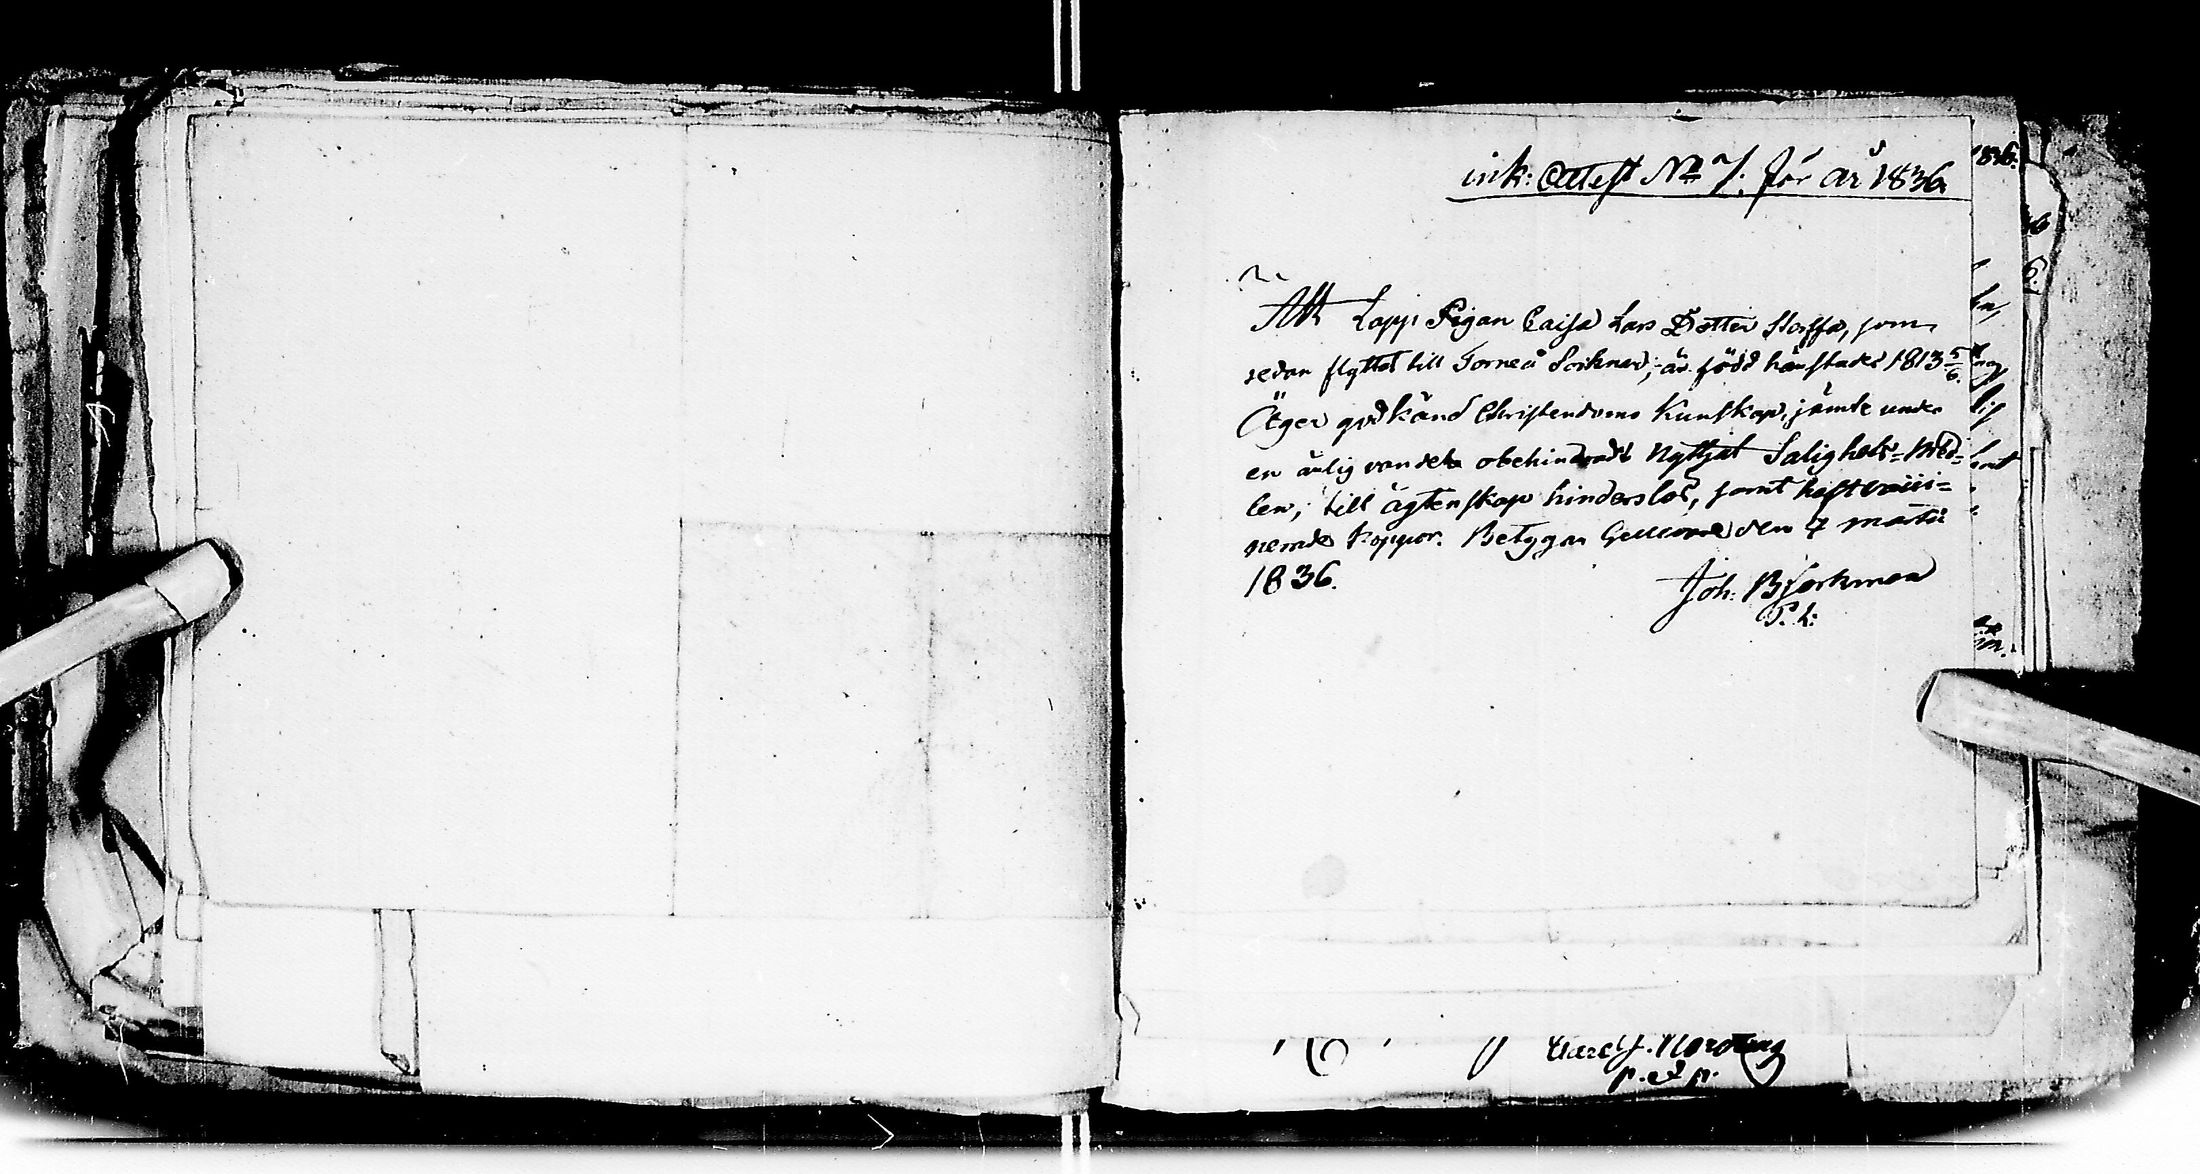 ink: Attest No 7. för år 1836.
Att Lapp Pigan Caisa Lars Dotter Noffa, som
sedan flyttat till Torneå Sockned, är född härstädes 1813 5/6.
Äger godkänd Christendoms Kunskap, jämte under
en ärlig vandel obehindradt Nyttjat Salighets-Med-
len, till ägtenskap hinderslös, samt haft vacci-
nerade koppor. Betygar Gellivare den 7 martii
1836.
Joh. Björkman
P. L.
1836.
6
p. et p.